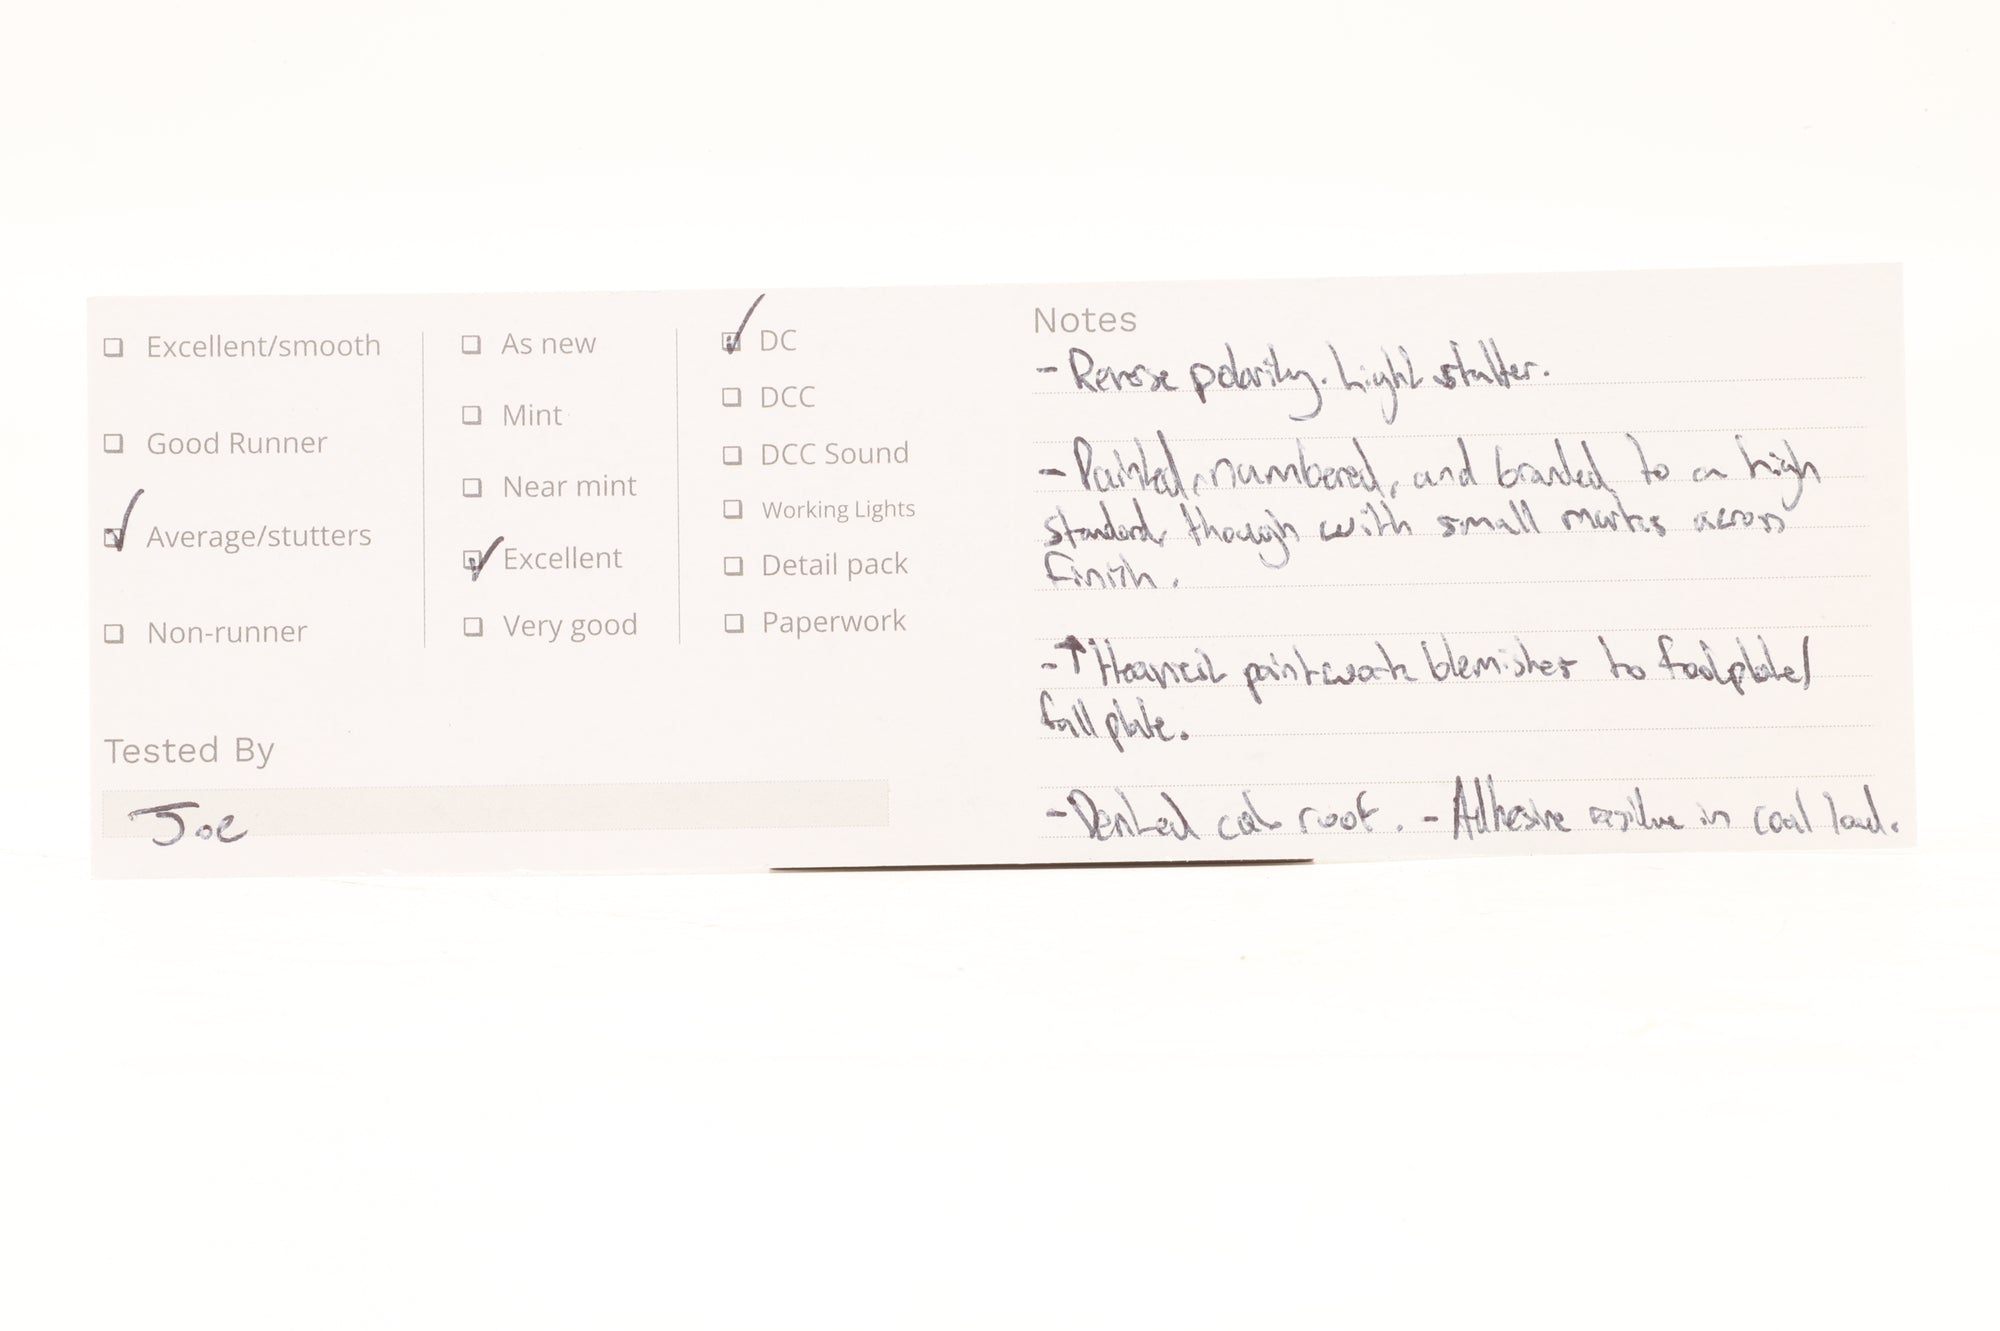 Excellent/smooth
Good Runner
Average/stutters
Non-runner
As new
Mint
Near mint
Excellent
Very good
DC
DCC
DCC Sound
Working Lights
Detail pack
Paperwork
Tested By
Joe
Notes
- Reverse polarity. Light stutter.
- Painted, numbered, and branded to a high
standard, though with small marks across
finish.
- ↑ Heaviest paintwork blemishes to footplate/
fall plate.
- Dented cab roof. - Adhesive residue in coal load.